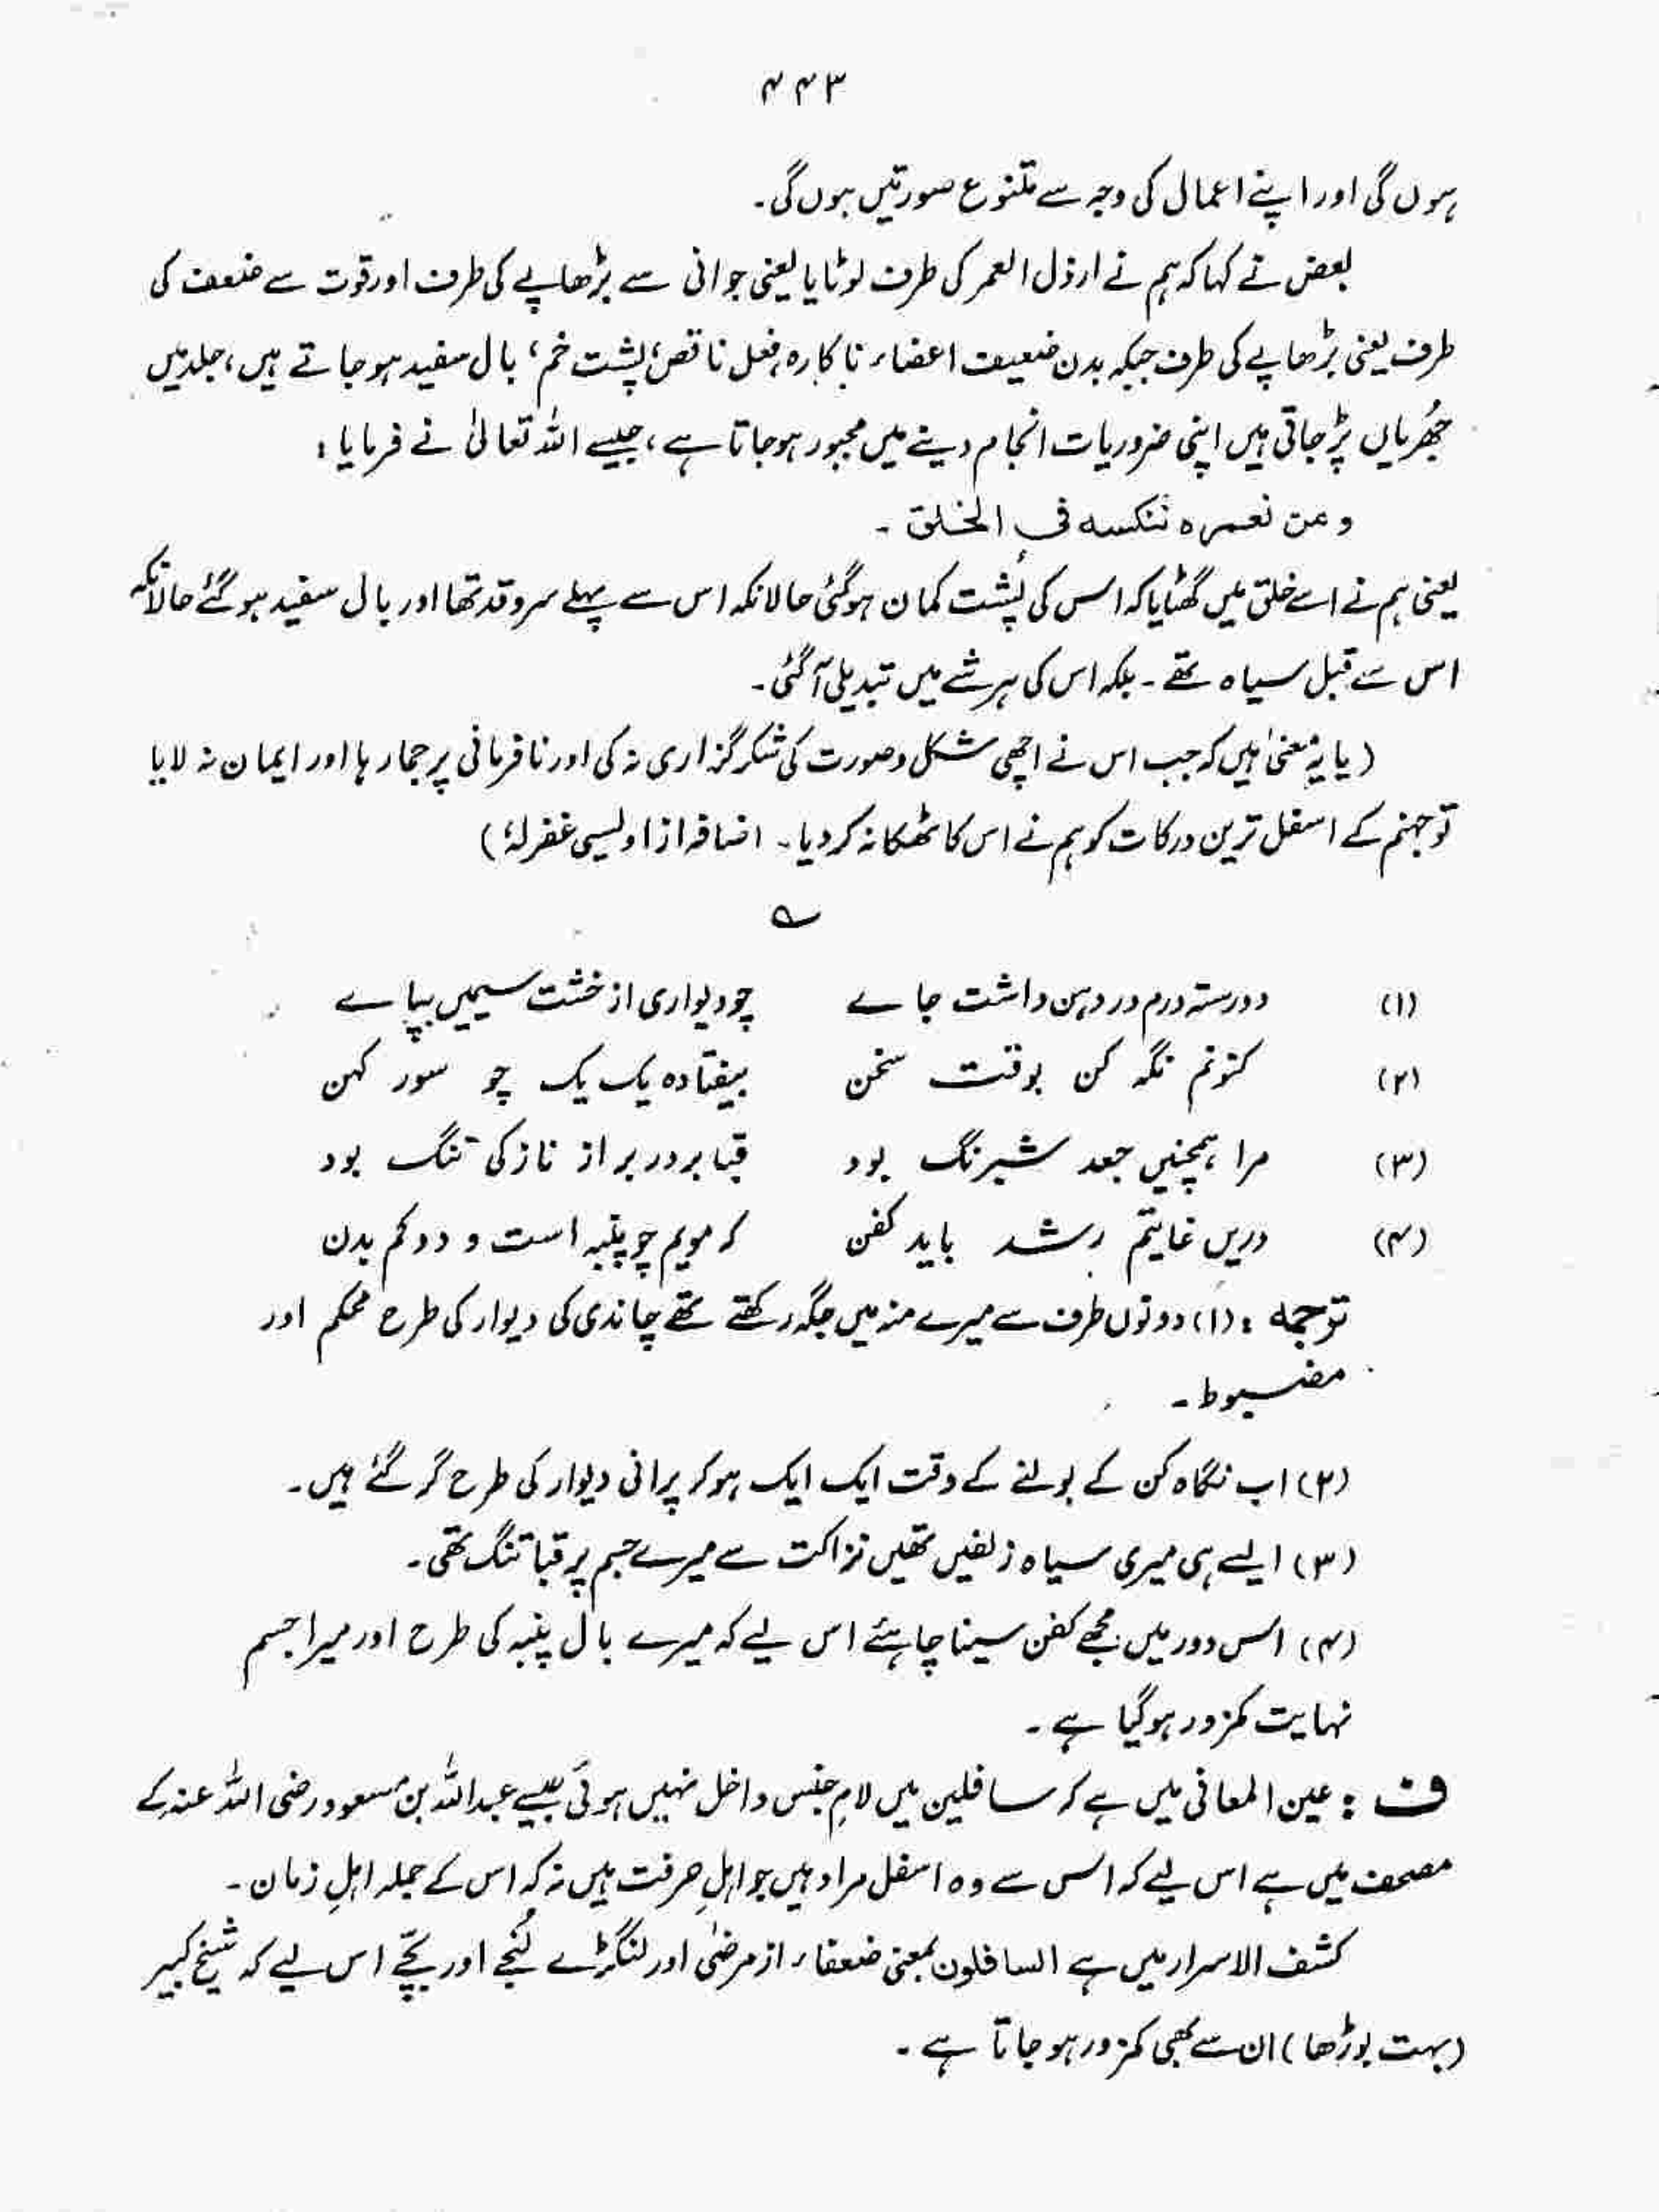 ۴۴۳
ہوں گی اور اپنے اعمال کی وجہ سے متنوع صورتیں ہوں گی۔
بعض نے کہا کہ ہم نے ارذل العمر کی طرف لوٹایا یعنی جوانی سے بڑھاپے کی طرف اور قوت سے ضعف کی
طرف یعنی بڑھاپے کی طرف جبکہ بدن ضعیف اعضاء ناکارہ، فعل ناقص، پشت خم، بال سفید ہو جاتے ہیں، جلد میں
جُھریاں پڑ جاتی ہیں اپنی ضروریات انجام دینے میں مجبور ہو جاتا ہے، جیسے اللہ تعالیٰ نے فرمایا:
ومن نعمره ننكسه في الخلق ۔
یعنی ہم نے اسے خلق میں گھٹایا کہ اس کی پُشت کمان ہو گئی حالانکہ اس سے پہلے سرو قد تھا اور بال سفید ہو گئے حالانکہ
اس سے قبل سیاہ تھے۔ بلکہ اس کی ہر شے میں تبدیلی آ گئی۔
(یا یہ معنیٰ ہیں کہ جب اس نے اچھی شکل و صورت کی شکر گزاری نہ کی اور نافرمانی پر جما رہا اور ایمان نہ لایا
تو جہنم کے اسفل ترین درکات کو ہم نے اس کا ٹھکانہ کر دیا۔ اضافہ از اویسی غفرلہٗ)
؎
(۱) دو رستہ درم در دہن داشت جاے چو دیواری از خشت سیمیں بپاے
(۲) کنونم نگہ کن بوقت سخن بیفتادہ یک یک چو سور کہن
(۳) مرا ہمچنیں جعد شبرنگ بود قبا بر در بر از نازکی تنگ بود
(۴) دریں غایتم رشد باید کفن کہ مویم چو پنبہ است و دوکم بدن
ترجمہ : (۱) دونوں طرف سے میرے منہ میں جگہ رکھتے تھے چاندی کی دیوار کی طرح محکم اور
مضبوط۔
(۲) اب نگاہ کن کے بولنے کے وقت ایک ایک ہو کر پرانی دیوار کی طرح گر گئے ہیں۔
(۳) ایسے ہی میری سیاہ زلفیں تھیں نزاکت سے میرے جسم پر قبا تنگ تھی۔
(۴) اس دور میں مجھے کفن سینا چاہئے اس لیے کہ میرے بال پنبہ کی طرح اور میرا جسم
نہایت کمزور ہو گیا ہے۔
ف : عین المعانی میں ہے کہ سافلین میں لامِ جنس داخل نہیں ہوئی جیسے عبداللہ بن مسعود رضی اللہ عنہ کے
مصحف میں ہے اس لیے کہ اس سے وہ اسفل مراد ہیں جو اہلِ حرفت ہیں نہ کہ اس کے جملہ اہلِ زمان۔
کشف الاسرار میں ہے السافلون بمعنی ضعفاء از مرضیٰ اور لنگڑے لُنجے اور بچّے اس لیے کہ شیخ کبیر
(بہت بوڑھا) ان سے بھی کمزور ہو جاتا ہے۔